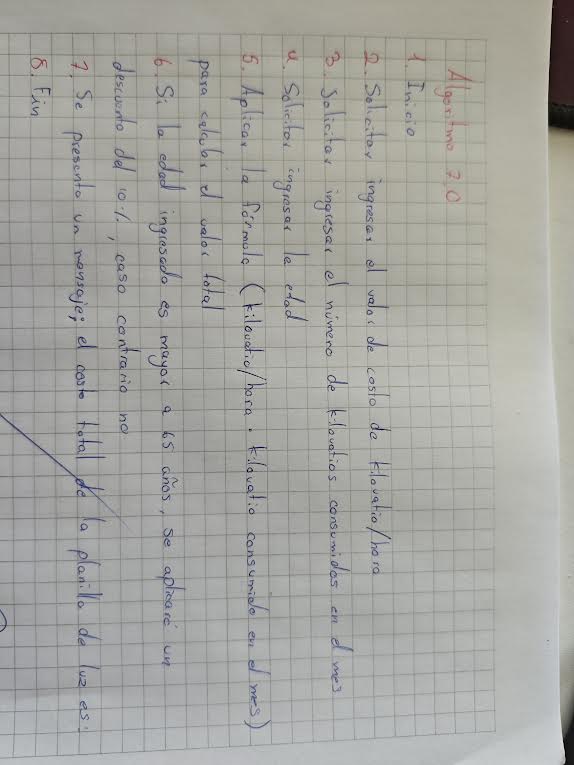 Algoritmo 7.0
1. Inicio
2. Solicitar ingresar el valor de costo de kilovatio/hora
3. Solicitar ingresar el número de kilovatios consumidos en el mes
4. Solicitar ingresar la edad
5. Aplicar la fórmula (kilovatio/hora · kilovatio consumido en el mes)
para calcular el valor total
6. Si la edad ingresada es mayor a 65 años, se aplicará un
descuento del 10%, caso contrario no
7. Se presenta un mensaje; el costo total de la planilla de luz es:
8. Fin